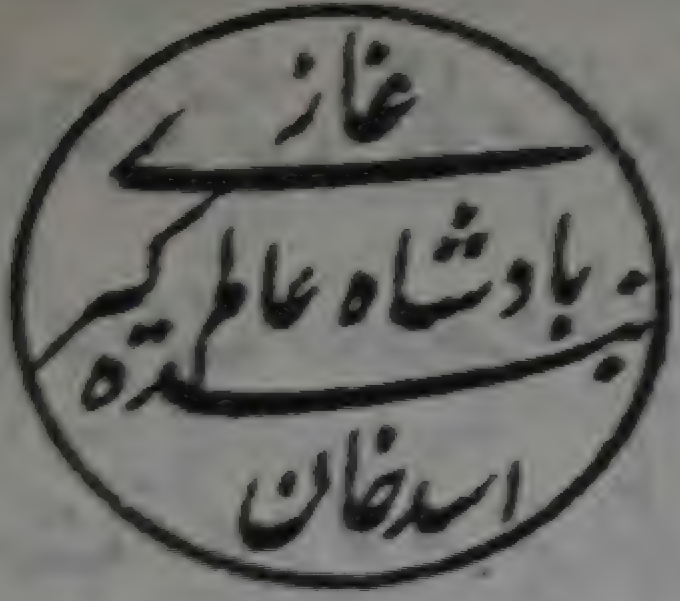 غازے
بادشاہ عالم گیر
بندہ
اسد خان